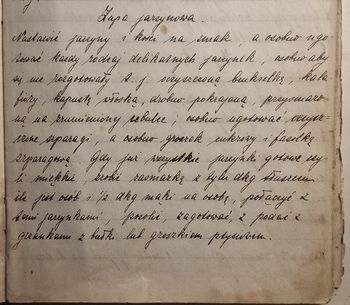 Zupa jarzynowa.
Nastawić jarzyny i kości na smak, a osobno ugo-
tować każdy rodzaj delikatnych jarzynek, osobno aby
się nie rozgotowały t. j. oczyszczoną brukselkę, kala
fiory, kapustę włoską, drobno pokrajaną, przysmażo
ną na zrumienionej cebulce; osobno ugotować oczysz-
czone szparagi, a osobno groszek cukrowy i fasolkę
szparagową. Gdy już wszystkie jarzynki gotowe by-
li miękkie, zrobić zasmażkę z tylu dkg tłuszczu
ile jest osób i 1/2 dkg mąki na osobę, połączyć z
temi jarzynkami, posolić, zagotować, i podać z
grzankami z bułki lub groszkiem ptysiowem.